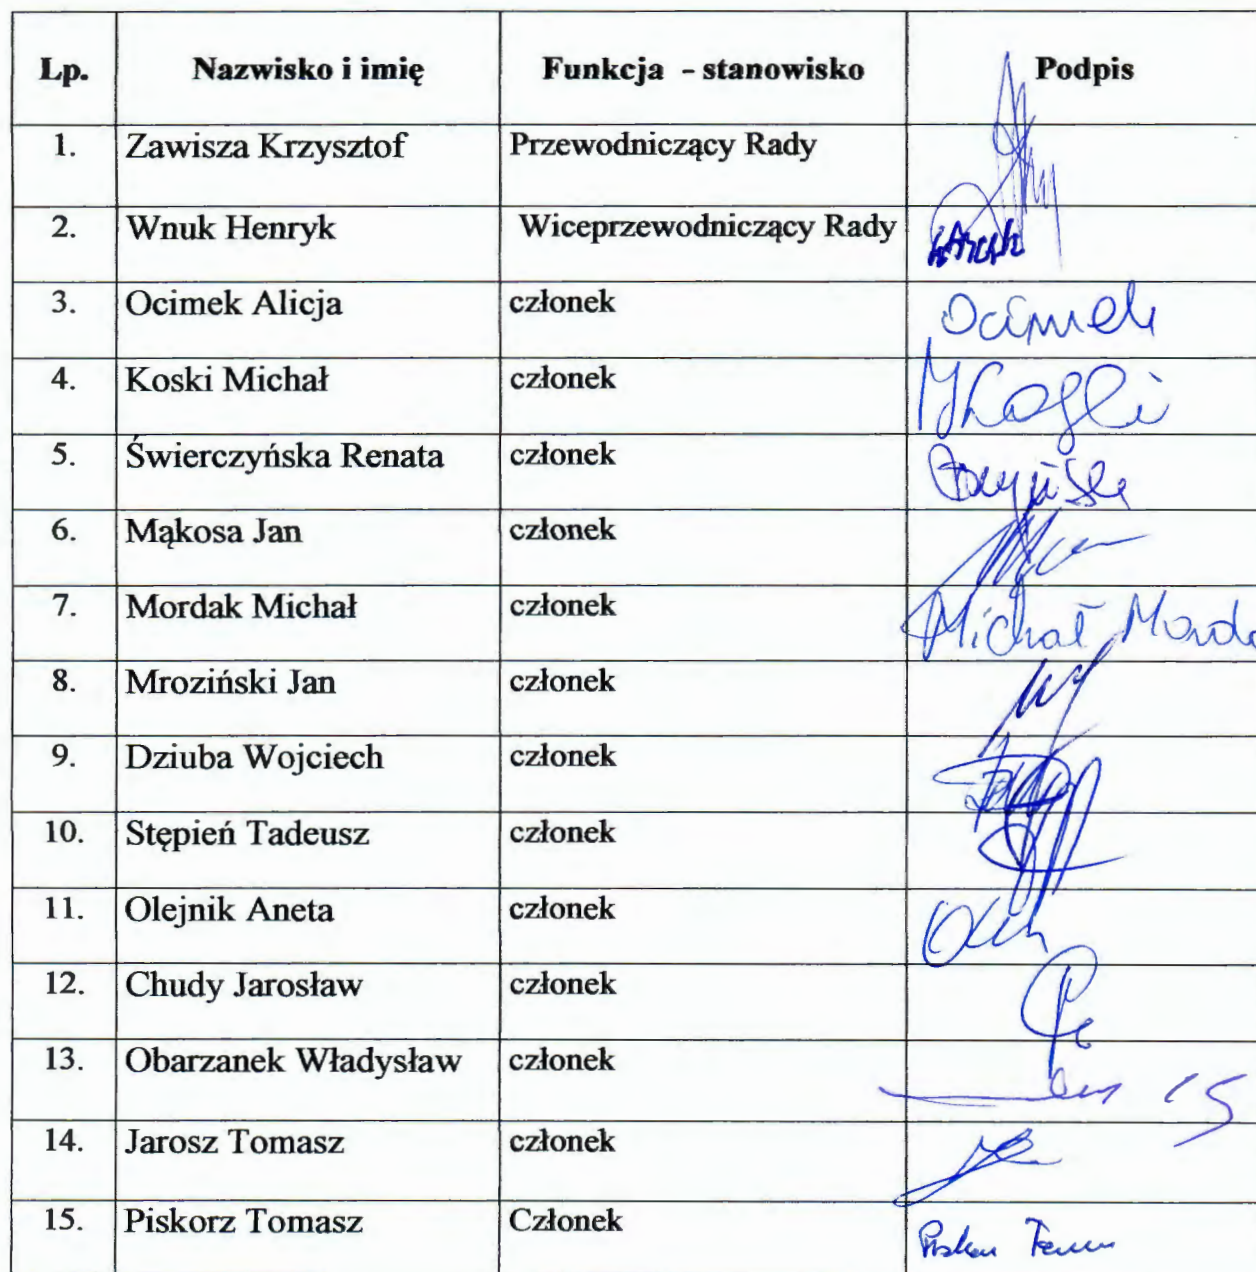 Lp. Nazwisko i imię Funkcja - stanowisko Podpis
1. Zawisza Krzysztof Przewodniczący Rady
2. Wnuk Henryk Wiceprzewodniczący Rady
3. Ocimek Alicja członek Ocimek
4. Koski Michał członek
5. Świerczyńska Renata członek
6. Mąkosa Jan członek
7. Mordak Michał członek Michał Morda
8. Mroziński Jan członek
9. Dziuba Wojciech członek
10. Stępień Tadeusz członek
11. Olejnik Aneta członek
12. Chudy Jarosław członek
13. Obarzanek Władysław członek
14. Jarosz Tomasz członek
15. Piskorz Tomasz Członek